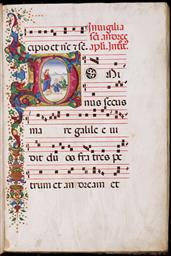 In uigilia
sc̄i andree
capio et nc̄ et se. apli. Introit.
Omi
nus secus
ma re galilee ui
dit du os fratres pe
trum et andream et